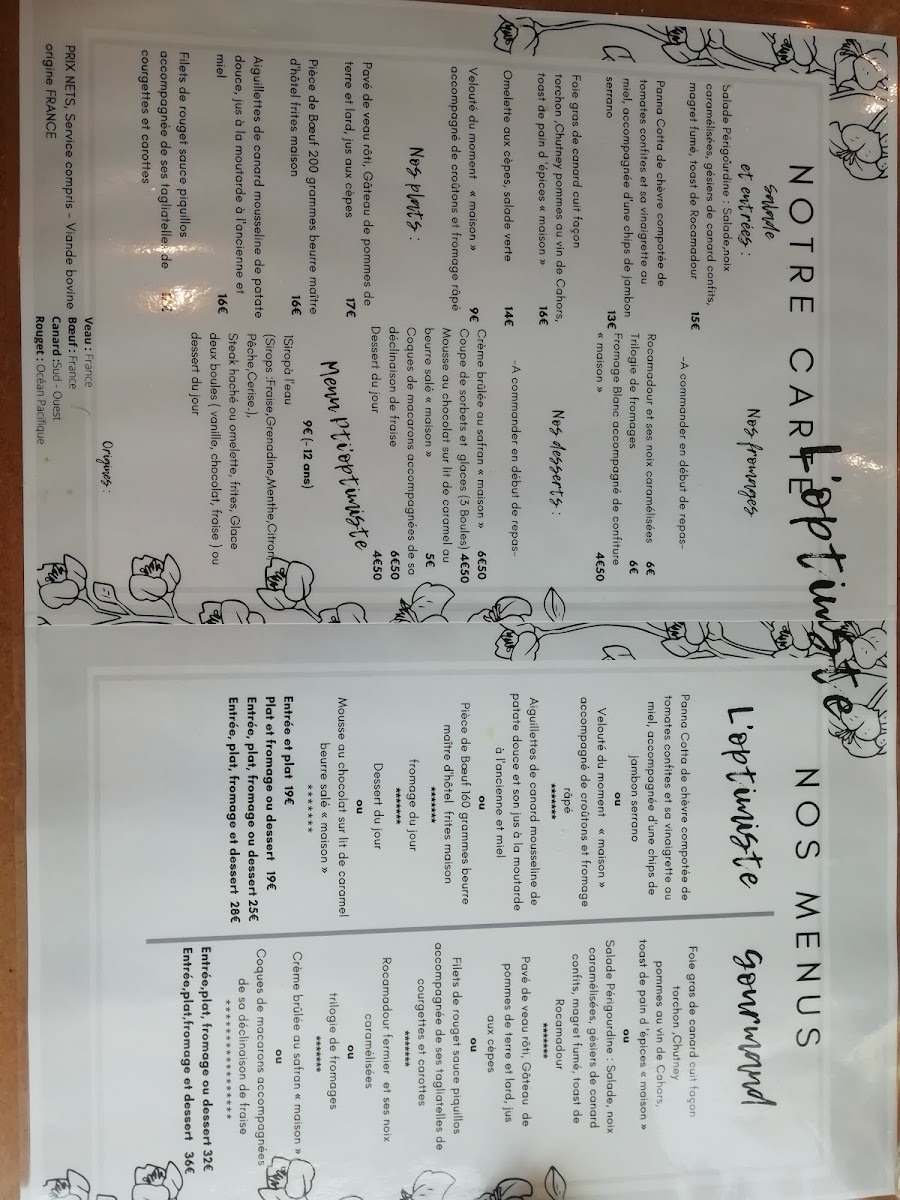 L'optimiste
NOTRE CARTE
Salade
et entrées :
Salade Périgourdine : Salade,noix
caramélisées, gésiers de canard confits,
magret fumé, toast de Rocamadour
15€
Panna Cotta de chèvre compotée de
tomates confites et sa vinaigrette au
miel, accompagnée d'une chips de jambon
serrano
13€
Foie gras de canard cuit façon
torchon ,Chutney pommes au vin de Cahors,
toast de pain d'épices « maison »
16€
Omelette aux cèpes, salade verte
14€
Velouté du moment « maison »
accompagné de croûtons et fromage râpé
9€
Nos plats :
Pavé de veau rôti, Gâteau de pommes de
terre et lard, jus aux cèpes
17€
Pièce de Bœuf 200 grammes beurre maître
d'hôtel frites maison
16€
Aiguillettes de canard mousseline de patate
douce, jus à la moutarde à l'ancienne et
miel
16€
Filets de rouget sauce piquillos
accompagnée de ses tagliatelles de
courgettes et carottes
PRIX NETS, Service compris - Viande bovine
origine FRANCE
Nos fromages
-A commander en début de repas-
Rocamadour et ses noix caramélisées 6€
Trilogie de fromages 6€
Fromage Blanc accompagné de confiture
« maison » 4€50
Nos desserts :
-A commander en début de repas-
Crème brûlée au safran « maison » 6€50
Coupe de sorbets et glaces (3 Boules) 4€50
Mousse au chocolat sur lit de caramel au
beurre salé « maison » 5€
Coques de macarons accompagnées de sa
déclinaison de fraise 6€50
Dessert du jour 4€50
Menu Pti'optimiste
9€ (- 12 ans)
1Siropà l'eau
(Sirops :Fraise,Grenadine,Menthe,Citron
Pêche,Cerise,),
Steak haché ou omelette, frites, Glace
deux boules ( vanille, chocolat, fraise ) ou
dessert du jour
Origines :
Veau : France
Bœuf : France
Canard :Sud - Ouest
Rouget : Océan Pacifique
NOS MENUS
L'optimiste
Panna Cotta de chèvre compotée de
tomates confites et sa vinaigrette au
miel, accompagnée d'une chips de
jambon serrano
ou
Velouté du moment « maison »
accompagné de croûtons et fromage
râpé
*******
Aiguillettes de canard mousseline de
patate douce et son jus à la moutarde
à l'ancienne et miel
ou
Pièce de Bœuf 160 grammes beurre
maître d'hôtel frites maison
*******
fromage du jour
*******
Dessert du jour
ou
Mousse au chocolat sur lit de caramel
beurre salé « maison »
*******
Entrée et plat 19€
Plat et fromage ou dessert 19€
Entrée, plat, fromage ou dessert 25€
Entrée, plat, fromage et dessert 28€
gourmand
Foie gras de canard cuit façon
torchon ,Chutney
pommes au vin de Cahors,
toast de pain d'épices « maison »
ou
Salade Périgourdine : Salade, noix
caramélisées, gésiers de canard
confits, magret fumé, toast de
Rocamadour
*******
Pavé de veau rôti, Gâteau de
pommes de terre et lard, jus
aux cèpes
ou
Filets de rouget sauce piquillos
accompagnée de ses tagliatelles de
courgettes et carottes
*******
Rocamadour fermier et ses noix
caramélisées
ou
trilogie de fromages
*******
Crème brûlée au safran « maison »
ou
Coques de macarons accompagnées
de sa déclinaison de fraise
***************
Entrée,plat, fromage ou dessert 32€
Entrée,plat,fromage et dessert 36€